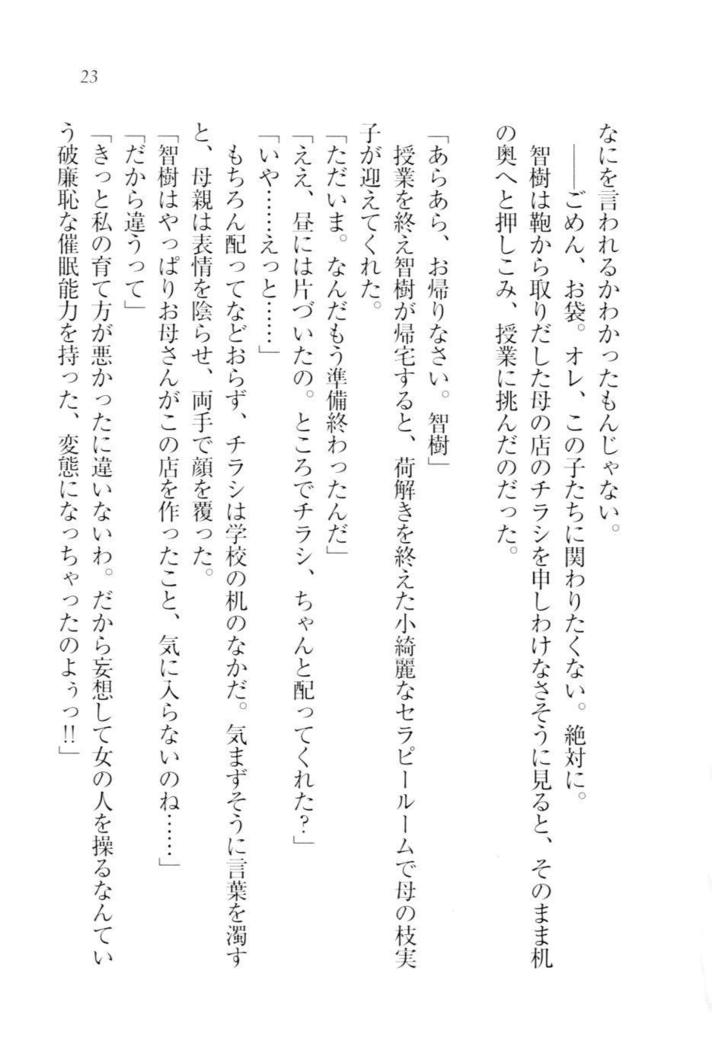 23
なにを言われるかわかったもんじゃない。
――ごめん、お袋。オレ、この子たちに関わりたくない。絶対に。
智樹は鞄から取りだした母の店のチラシを申しわけなさそうに見ると、そのまま机
の奥へと押しこみ、授業に挑んだのだった。
「あらあら、お帰りなさい。智樹」
授業を終え智樹が帰宅すると、荷解きを終えた小綺麗なセラピールームで母の枝実
子が迎えてくれた。
「ただいま。なんだもう準備終わったんだ」
「ええ、昼には片づいたの。ところでチラシ、ちゃんと配ってくれた？」
「いや……えっと……」
もちろん配ってなどおらず、チラシは学校の机のなかだ。気まずそうに言葉を濁す
と、母親は表情を陰らせ、両手で顔を覆った。
「智樹はやっぱりお母さんがこの店を作ったこと、気に入らないのね……」
「だから違うって」
「きっと私の育て方が悪かったに違いないわ。だから妄想して女の人を操るなんてい
う破廉恥な催眠能力を持った、変態になっちゃったのよぅっ!!」